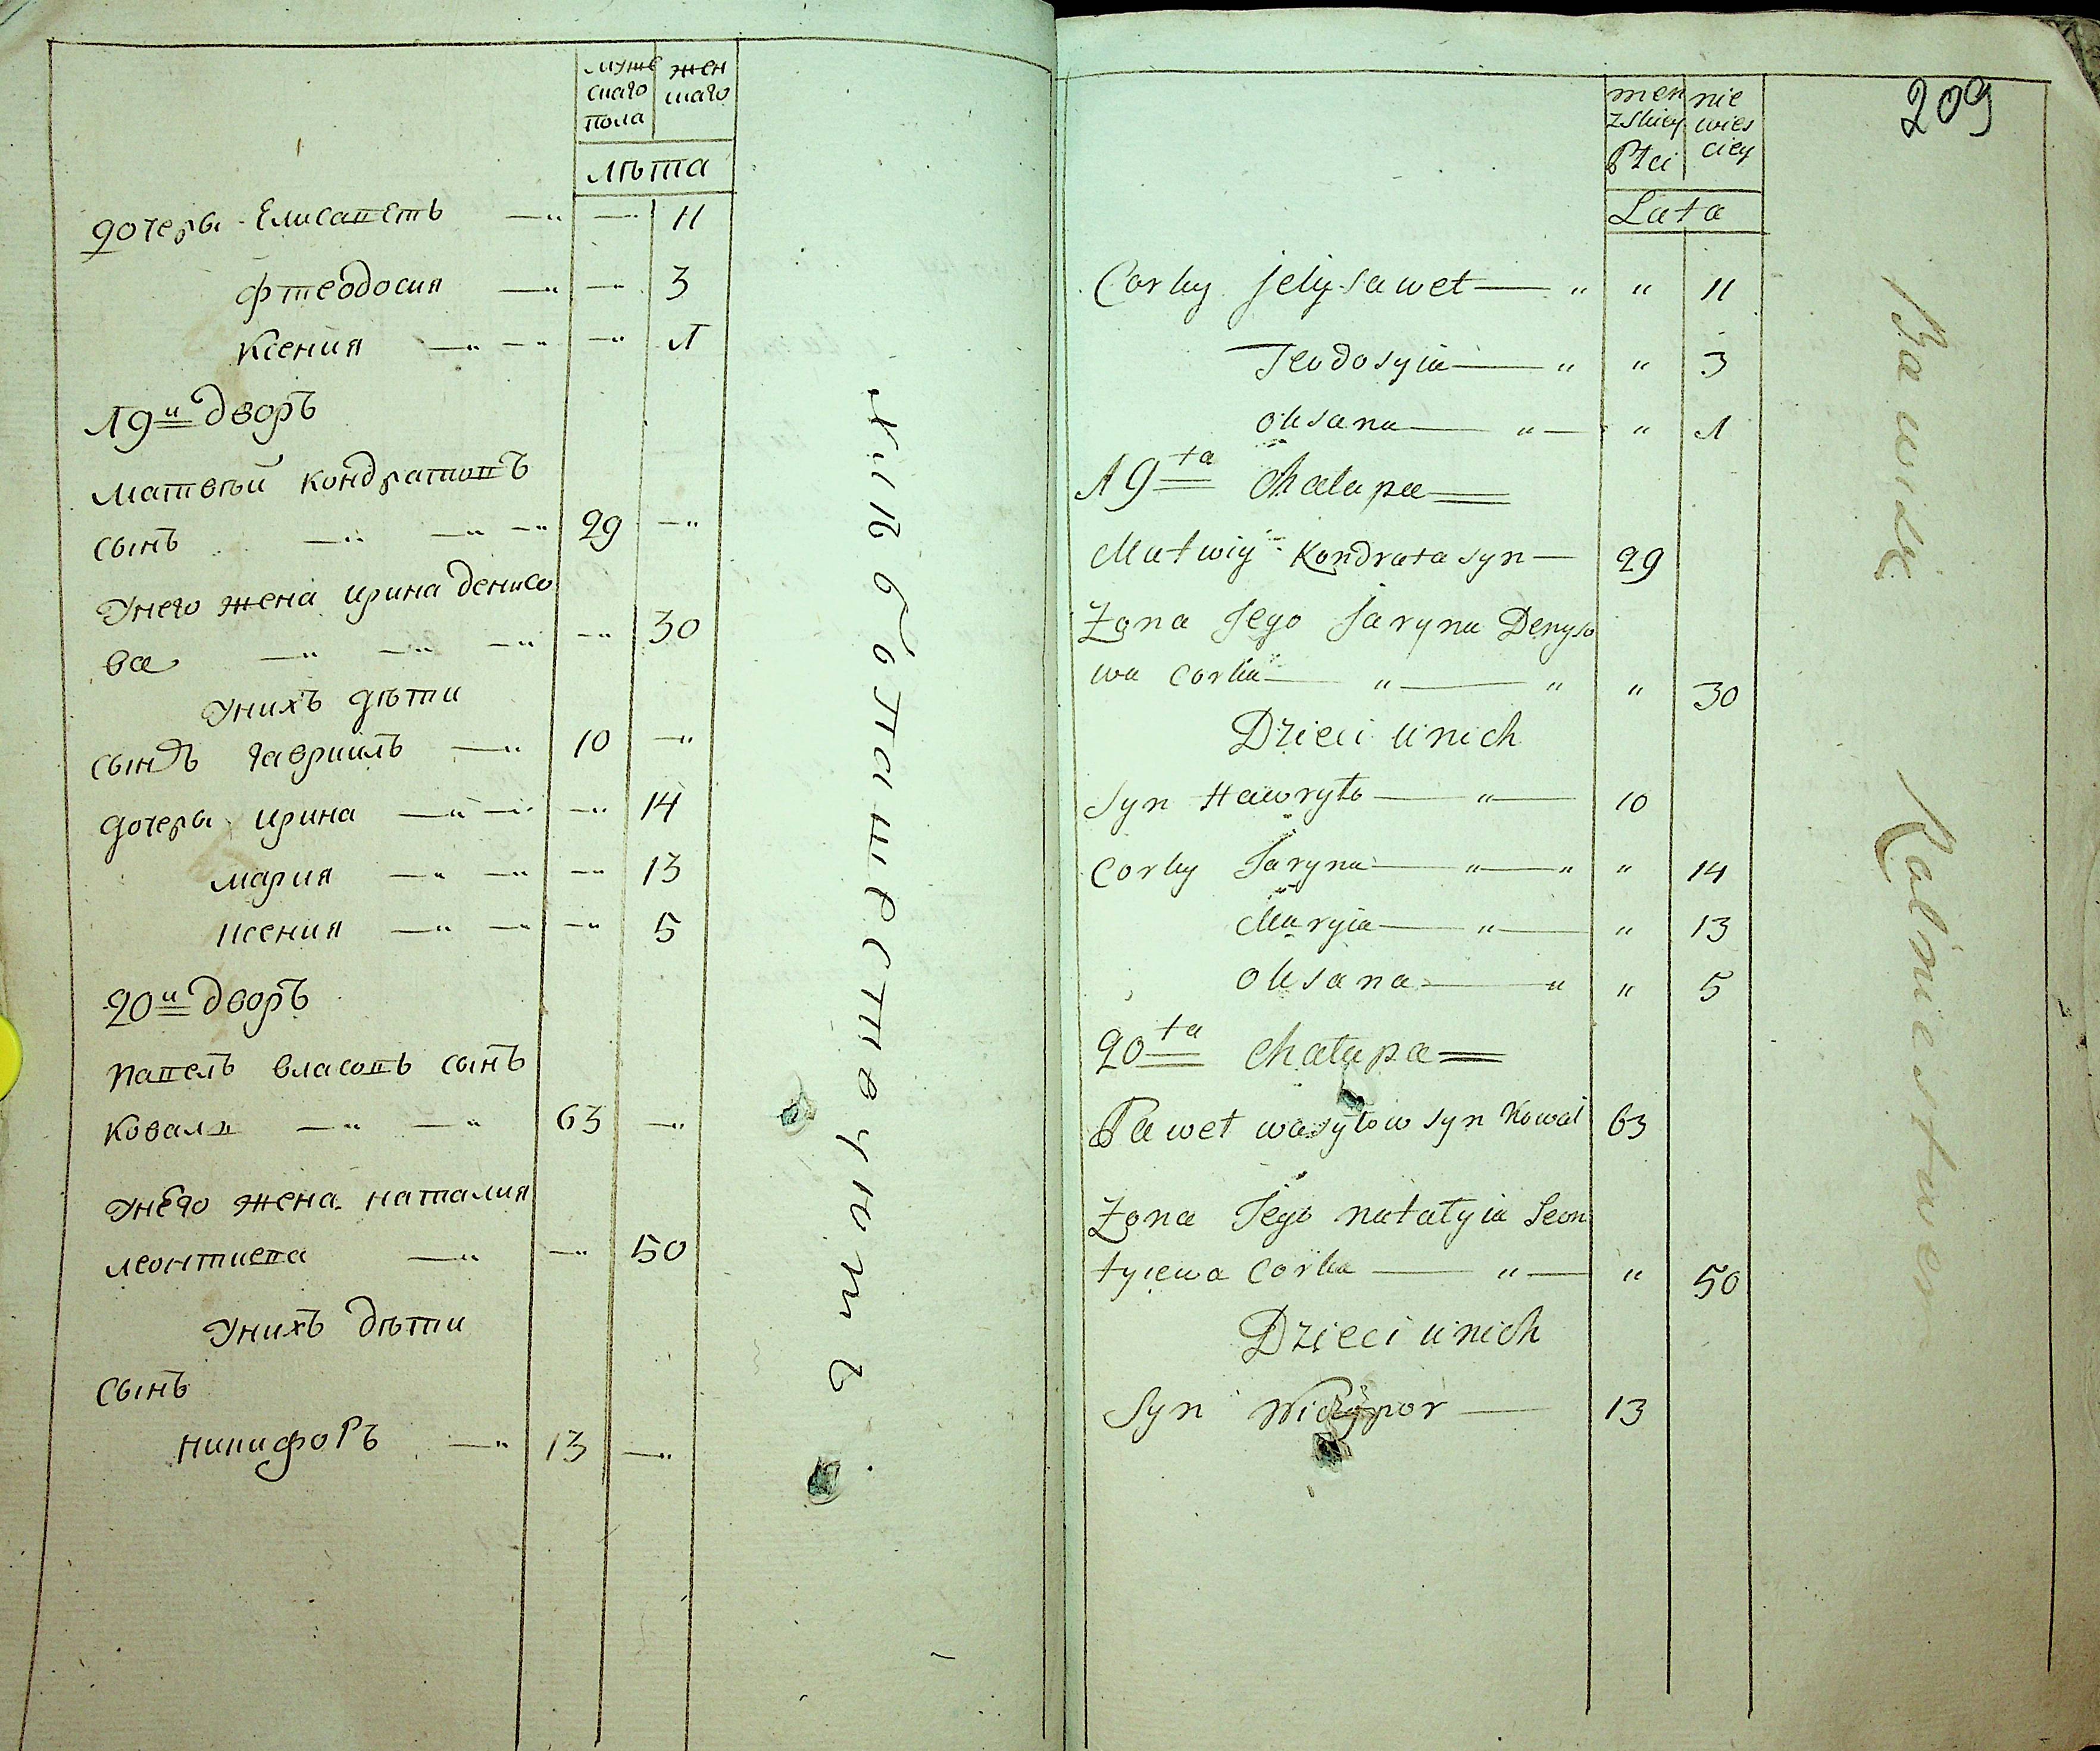 муже жен
скаго скаго
пола
лѣта
дочеры Елисаветъ —" —" 11
Фтеодосия —" —" 3
Ксения —" —" —" 1
19й дворъ
Матвѣй Кондратовъ
сынъ —" —" —" 29 —"
Унего жена Ирина Денисо
ва —" —" —" —" 30
Унихъ дѣти
сынъ Гавриилъ —" 10 —"
дочеры Ирина —" —" —" 14
Мария —" —" —" 13
Ксения —" —" —" 5
20й дворъ
Павелъ Власовъ сынъ
Коваль —" —" 63 —"
Унего жена Наталия
Леонтиева —" —" 50
Унихъ дѣти
сынъ
Никифоръ —" 13 —"
209
męz nie
zskiey wies
Płci ciey
Lata
Corky Jelysawet — " " 11
Teodosyia — " " 3
Oksana — " — " 1
19ta Chałupa
Matwiy Kondrata syn — 29
Zona Jego Jaryna Denyso
wa Corka — " — " " 30
Dzieci u nich
Syn Hawryło — " — 10
Corky Jaryna — " — " " 14
Maryia — " — " 13
Oksana — " " 5
20ta Chałupa
Paweł wasyłow syn Kowal 63
Zona Jego natalyia Leon
tyiewa Corka — " — " 50
Dzieci u nich
Syn Niczypor — 13